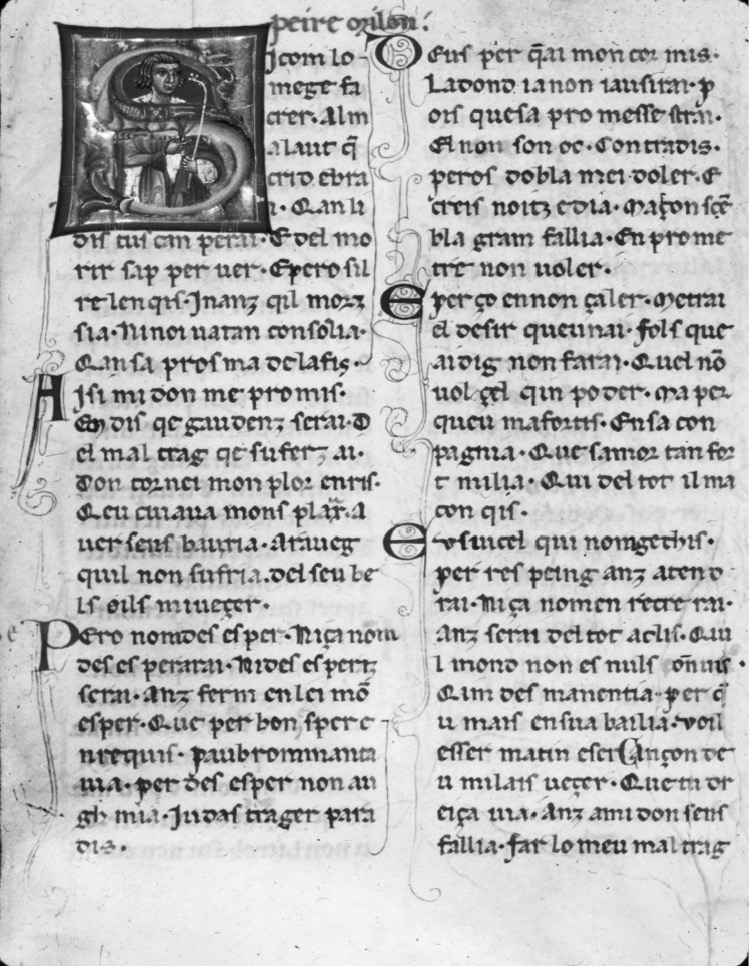 peire milon:
Sicom lo
mege fa
crer. Al m
alaut q̄
crid e bra
i. Qan li
dis cui can perai. E del mo
rir sap per uer. E pero sil
relenqis. Inanz qil morz
sia. Ni noi uatan consolia.
Qansa pros ma delafis.
Aisi midon me promis.
En dis qe gaudenz serai. D
el mal trag qe sufert ai.
Don tornei mon plor enris.
Qeu cuiaua mons plaz. A
uer seus bauzia. Araueg
quil non sufria. del seu be
ls oils mi ueger.
Pero nomdes esper. Niça nom
des es perarai. Ni des espertz
serai. Anz ferm en lei mō
esper. Que per bon spere
n requis. paubrom manta
uia. per des esper non au
gh mia. Judas trager para
dis.
Deus per q̄ai mon cor mis.
La dond ia non iausirai. p
ois quesa pro messe strai.
El non son oc. Contradis.
peros dobla mei doler. E
creis noitz e dia. Maçon sē
bla gram fallia. En prome
tre non uoler.
E per ço en non çaler. Metrai
el desir queu nai. fols que
ai dig non farai. Quel nō
uol gel qin poder. Ma per
queu mafortis. En sa con
pagnia. Que samor tan for
t milia. Qui del tot il ma
con qis.
Eu siu cel qui nomgethis.
per res peing anz atend
rai. Niça nomen recre rai.
Anz serai del tot aclis. Qui
l mond non es nuls om uis.
Qim des manentia. per q̄
u mais en sua bailia. voil
esser matin e ser Cançon de
u milais ueger. Que tu de
eiça uia. Anz ami don sens
fallia. far lo meu mal trag